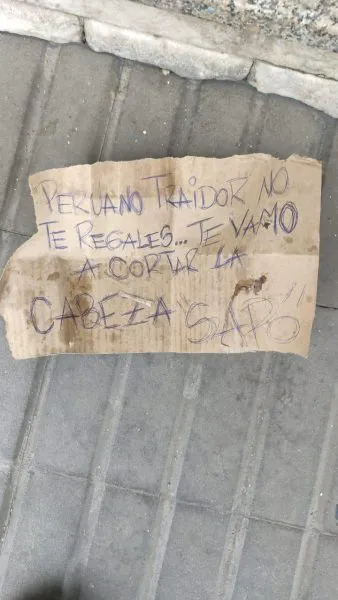 PERUANO TRAIDOR NO
TE REGALES... TE VAMO
A CORTAR LA
CABEZA "SAPO"